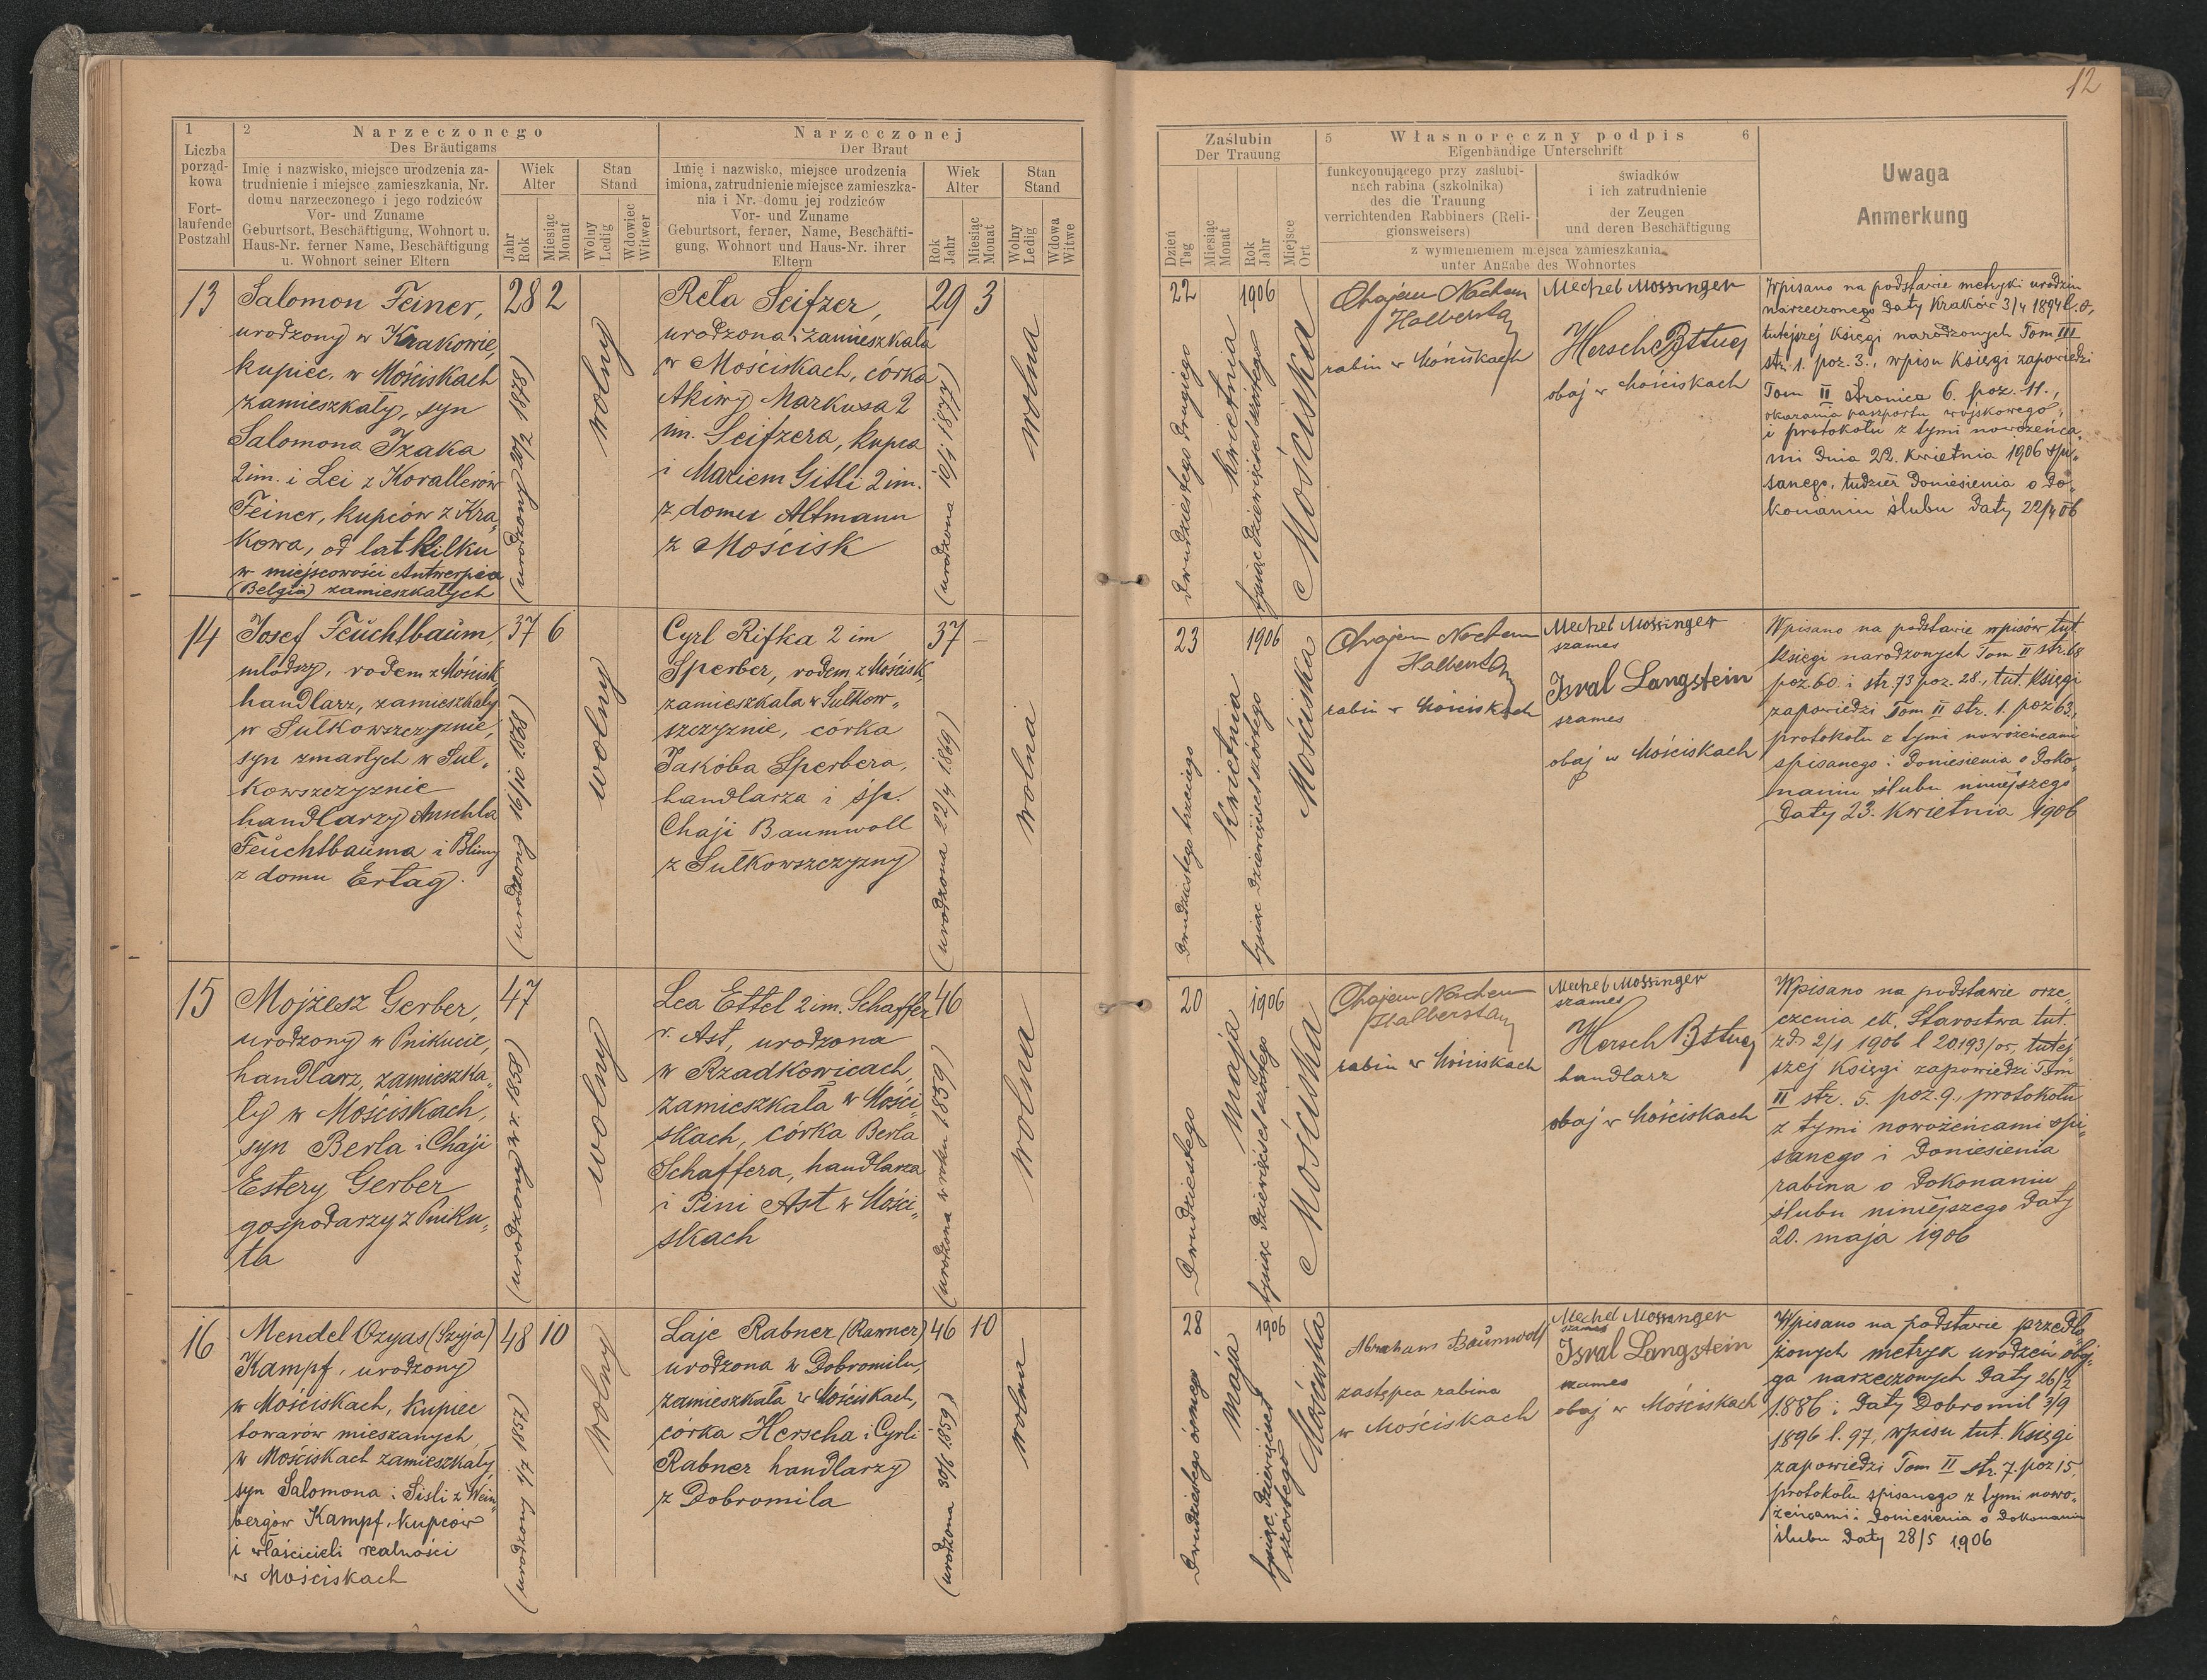 12
1
Liczba
porząd-
kowa
Fort-
laufende
Postzahl
2
Narzeczonego
Des Bräutigams
Imię i nazwisko, miejsce urodzenia za-
trudnienie i miejsce zamieszkania, Nr.
domu narzeczonego i jego rodziców
Vor- und Zuname
Geburtsort, Beschäftigung, Wohnort u.
Haus-Nr. ferner Name, Beschäftigung
u. Wohnort seiner Eltern
Wiek
Alter
Jahr
Rok
Miesiąc
Monat
Stan
Stand
Wolny
Ledig
Wdowiec
Witwer
Narzeczonej
Der Braut
Imię i nazwisko, miejsce urodzenia
imiona, zatrudnienie miejsce zamieszka-
nia i Nr. domu jej rodziców
Vor- und Zuname
Geburtsort, ferner, Name, Beschäfti-
gung, Wohnort und Haus-Nr. ihrer
Eltern
Wiek
Alter
Rok
Jahr
Miesiąc
Monat
Stan
Stand
Wolny
Ledig
Wdowa
Witwe
Zaślubin
Der Trauung
Dzień
Tag
Miesiąc
Monat
Rok
Jahr
Miejsce
Ort
5 Własnoręczny podpis 6
Eigenhändige Unterschrift
funkcyonującego przy zaślubi-
nach rabina (szkolnika)
des die Trauung
verrichtenden Rabbiners (Reli-
gionsweisers)
świadków
i ich zatrudnienie
der Zeugen
und deren Beschäftigung
z wymienieniem miejsca zamieszkania
unter Angabe des Wohnortes
Uwaga
Anmerkung
13
Salomon Feiner,
urodzony w Krakowie,
kupiec, w Mościskach
zamieszkały, syn
Salomona Izaka
2 im. i Lei z Korallerów
Feiner, kupców z Kra„
kowa, od lat kilku
w miejscowości Antwerpia
(Belgia) zamieszkałych
28 2
(urodzony 20/2 1878)
wolny
Rela Seifzer,
urodzona i zamieszkała
w Mościskach, córka
Akiwy Markusa 2
im. Seifzera, kupca
i Mariem Gitli 2 im.
z domu Altmann
z Mościsk
29 3
(urodzona 10/1 1877)
wolna
22
dwudziestego drugiego
Kwietnia
1906
tysiąc dziewięćset szóstego
Mościska
Chajem Nachem
Halberstam
rabin w Mościskach
Mechel Mossinger
Hersch Bttug
obaj w Mościskach
Wpisano na podstawie metryki urodzin
narzeczonego daty Kraków 3/4 1894 l. 0,
tutejszej księgi narodzonych Tom III
str. 1. poz. 3., wpisu księgi zapowiedzi
Tom II stronica 6. poz. 11.,
okazania paszportu wojskowego,
i protokołu z tymi nowożeńca„
mi dnia 22. kwietnia 1906 spi„
sanego, tudzież doniesienia o do„
konaniu ślubu daty 22/4 06
14
Josef Feuchtbaum,
młodszy, rodem z Mościsk,
handlarz, zamieszkały
w Sułkowszczyznie,
syn zmarłych w Suł„
kowszczyznie
handlarzy Anschla
Feuchtbauma i Blimy
z domu Ertag.
37 6
(urodzony 16/10 1868)
wolny
Cyrl Rifka 2 im
Sperber, rodem z Mościsk,
zamieszkała w Sułkow„
szczyznie, córka
Jakóba Sperbera,
handlarza i śp.
Chaji Baumwoll
z Sułkowszczyzny
37 –
(urodzona 22/4 1869)
wolna
23
dwudziestego trzeciego
Kwietnia
1906
tysiąc dziewięćset szóstego
Mościska
Chajem Nachem
Halberstam
rabin w Mościskach
Mechel Mossinger
szames
Isral Langstein
szames
obaj w Mościskach
Wpisano na podstawie wpisów tut.
księgi narodzonych Tom II str. 68
poz. 60. i str. 73 poz. 28., tut. księgi
zapowiedzi Tom II str. 1. poz 63.,
protokołu z tymi nowożeńcami
spisanego i doniesienia o doko„
naniu ślubu niniejszego
daty 23. kwietnia 1906
15
Mojżesz Gerber,
urodzony w Pnikucie,
handlarz, zamieszka„
ły w Mościskach,
syn Berla i Chaji
Estery Gerber
gospodarzy z Pniku„
ta
47
(urodzony w r. 1858)
wolny
Lea Ettel 2 im. Schaffer
r. Ast, urodzona
w Rzadkowicach,
zamieszkała w Mości„
skach, córka Berla
Schaffera, handlarza
i Pini Ast w Mości„
skach
46
(urodzona w roku 1859)
wolna
20
Dwudziestego
Maja
1906
tysiąc dziewięćset szóstego
Mościska
Chajem Nachem
Halberstam
rabin w Mościskach
Mechel Mossinger
szames
Hersch Bttug
handlarz
obaj w Mościskach
Wpisano na podstawie orze„
czenia ck. Starostwa tut.
z d. 2/1 1906 l 20.193/05, tutej„
szej księgi zapowiedzi Tom
II str. 5. poz. 9., protokołu
z tymi nowożeńcami spi„
sanego i doniesienia
rabina o dokonaniu
ślubu niniejszego daty
20. maja 1906
16
Mendel Ozyas (Szyja)
Kampf, urodzony
w Mościskach, kupiec
towarów mieszanych
w Mościskach zamieszkały,
syn Salomona i Sisli z Wein„
bergów Kampf, kupców
i właścicieli realności
w Mościskach
48 10
(urodzony 1/7 1857)
wolny
Laje Rabner (Rawner)
urodzona w Dobromilu,
zamieszkała w Mościskach,
córka Herscha i Cyrli
Rabner handlarzy
z Dobromila
46 10
(urodzona 30/6 1859)
wolna
28
Dwudziestego ósmego
Maja
1906
tysiąc dziewięćset
szóstego
Mościska
Abraham Baumwoll
zastępca rabina
w Mościskach
Mechel Mossinger
szames
Isral Langstein
szames
obaj w Mościskach
Wpisano na podstawie przedło„
żonych metryk urodzeń oboj„
ga narzeczonych daty 26/2
1886 i daty Dobromil 3/9
1896 l. 97, wpisu tut. księgi
zapowiedzi Tom II str. 7. poz 15,
protokołu spisanego z tymi nowo„
żeńcami i doniesienia o dokonaniu
ślubu daty 28/5 1906